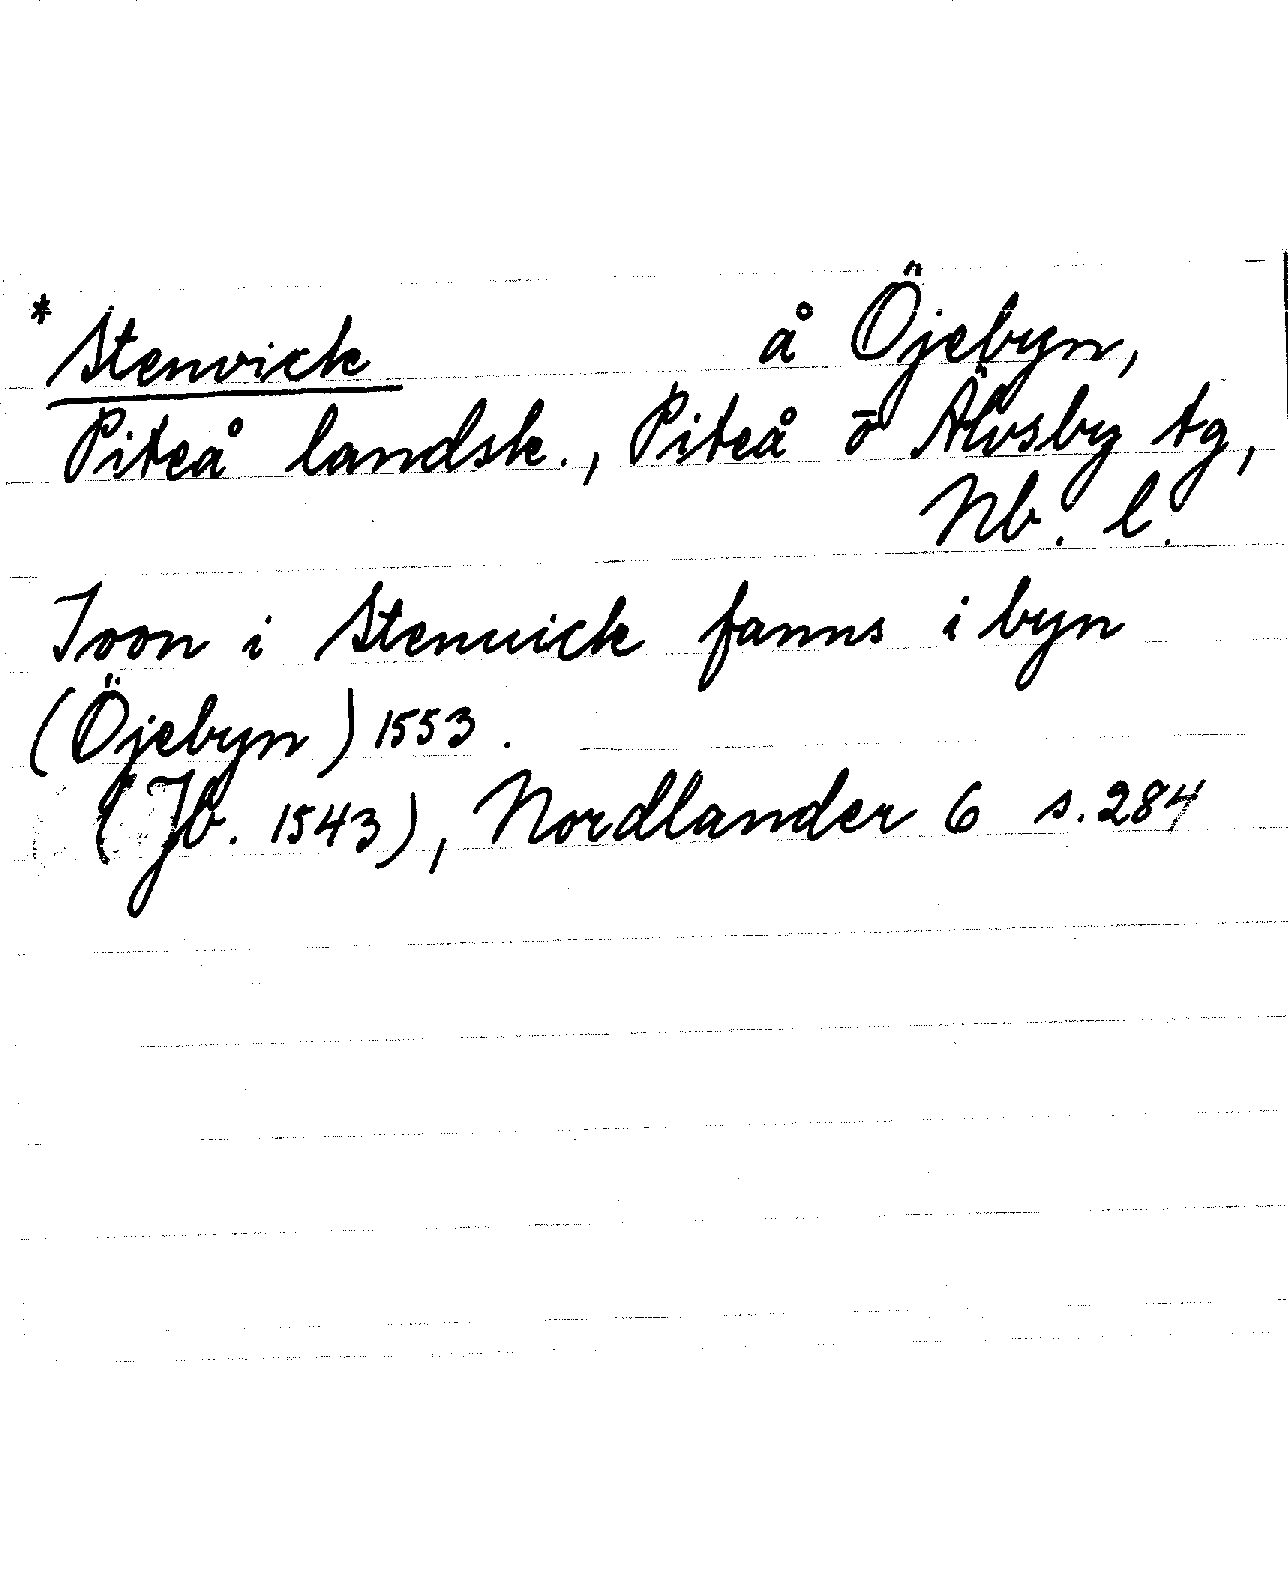 * Stenvick å Öjebyn,
Piteå landsk., Piteå o Älvsby tg,
Nb. l.
Ioon i Stenuick fanns i byn
(Öjebyn) 1553.
(Jb. 1543), Nordlander 6 s. 284